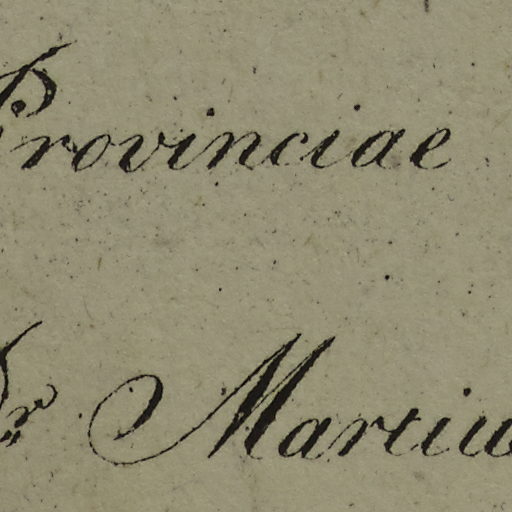 Provinciae
Dr Martiu